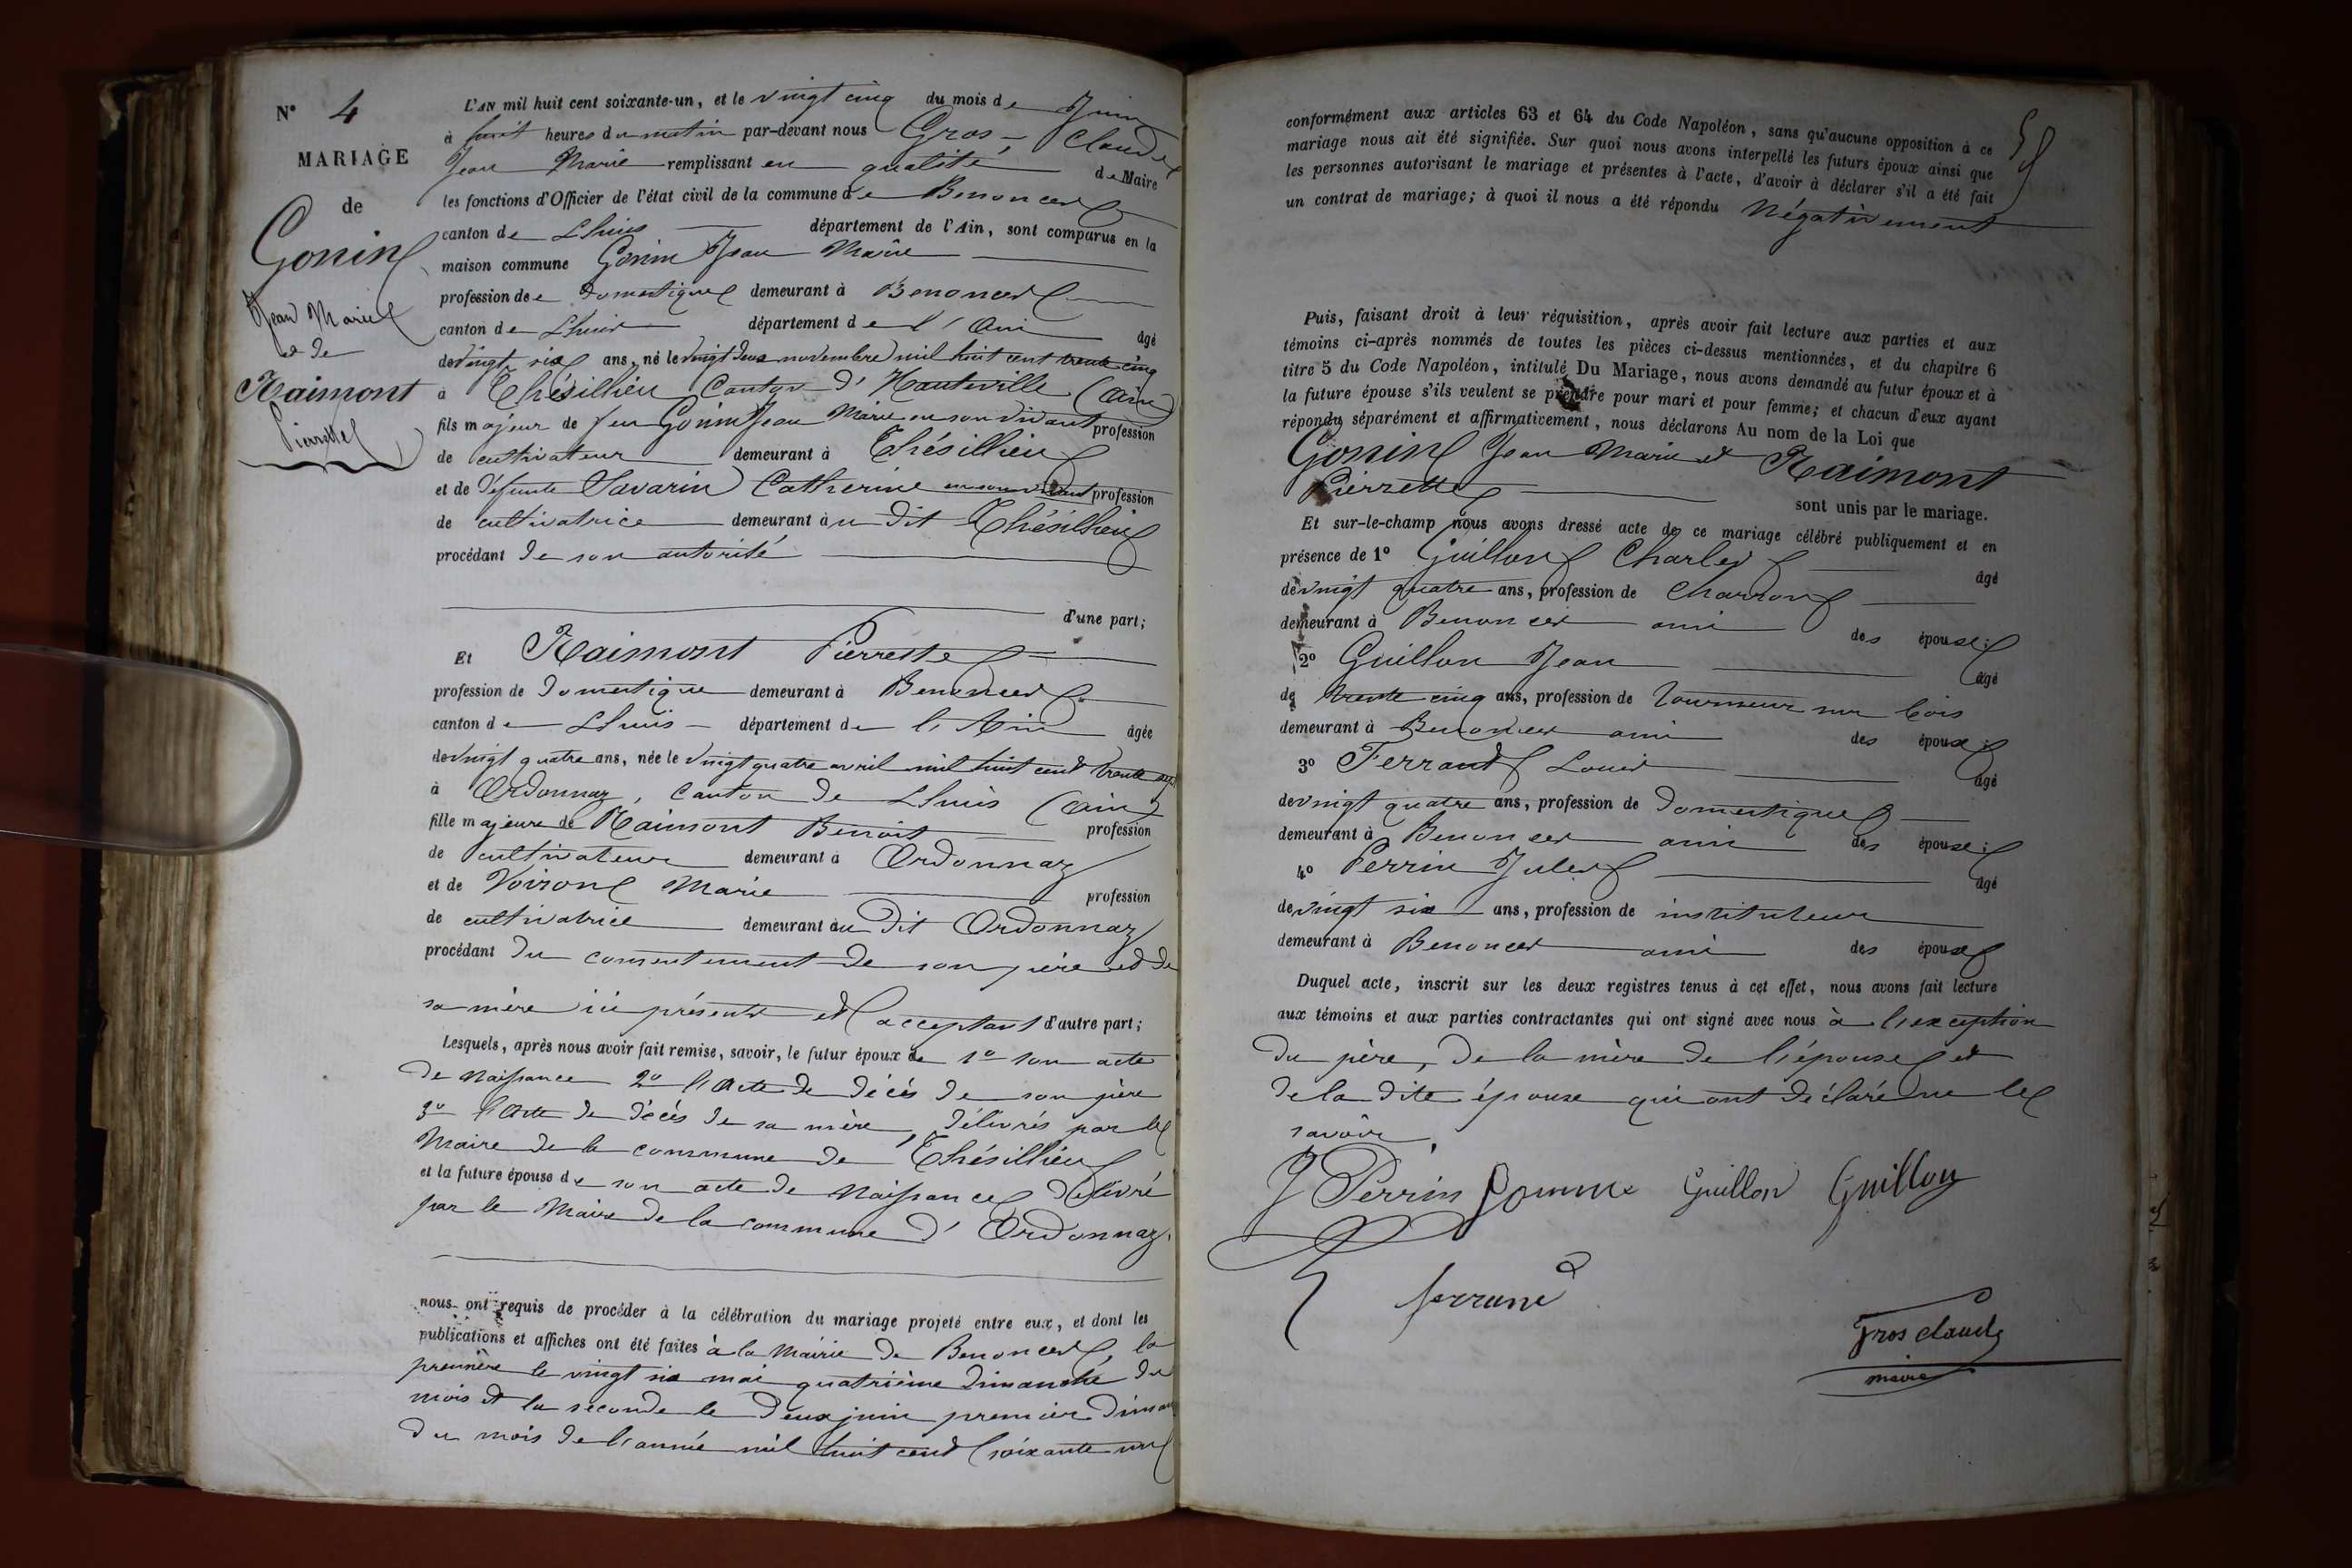 N° 4
MARIAGE
de
Gonin
Jean Marie
et de
Raimont
Pierrette
L'AN mil huit cent soixante-un, et le vingt cinq du mois de Juin
à huit heures du matin par-devant nous Gros, Claude
Jean Marie remplissant en qualité de Maire
les fonctions d'Officier de l'état civil de la commune de Benonces
canton de Lhuis département de l'Ain, sont comparus en la
maison commune Gonin Jean Marie
profession de domestique demeurant à Benonces
canton de Lhuis département de l'Ain âgé
de vingt six ans, né le vingt deux novembre mil huit cent trente cinq
à Thésillieu Canton d'Hauteville (Ain)
fils majeur de feu Gonin Jean Marie en son vivant profession
de cultivateur demeurant à Thésillieu
et de défunte Savarin Catherine en son vivant profession
de cultivatrice demeurant au dit Thésillieu
procédant de son autorité
d'une part;
Et Raimont Pierrette
profession de domestique demeurant à Benonces
canton de Lhuis département de l'Ain âgée
de vingt quatre ans, née le vingt quatre avril mil huit cent trente sept
à Ordonnaz, Canton de Lhuis (Ain)
fille majeure de Raimont Benoit profession
de cultivateur demeurant à Ordonnaz
et de Voiron Marie profession
de cultivatrice demeurant au dit Ordonnaz
procédant du consentement de son père et de
sa mère ici présents et acceptant d'autre part;
Lesquels, après nous avoir fait remise, savoir, le futur époux de 1° son acte
de naissance 2° l'acte de décès de son père
3° l'acte de décès de sa mère, délivrés par le
Maire de la commune de Thésillieu
et la future épouse de son acte de naissance délivré
par le Maire de la commune d'Ordonnaz.
nous ont requis de procéder à la célébration du mariage projeté entre eux, et dont les
publications et affiches ont été faites à la Mairie de Benonces, la
première le vingt six mai quatrième dimanche du
mois et la seconde le deux juin premier diman
du mois de l'année mil huit cent soixante un
conformément aux articles 63 et 64 du Code Napoléon, sans qu'aucune opposition à ce
mariage nous ait été signifiée. Sur quoi nous avons interpellé les futurs époux ainsi que
les personnes autorisant le mariage et présentes à l'acte, d'avoir à déclarer s'il a été fait
un contrat de mariage; à quoi il nous a été répondu Négativement
Puis, faisant droit à leur réquisition, après avoir fait lecture aux parties et aux
témoins ci-après nommés de toutes les pièces ci-dessus mentionnées, et du chapitre 6
titre 5 du Code Napoléon, intitulé Du Mariage, nous avons demandé au futur époux et à
la future épouse s'ils veulent se prendre pour mari et pour femme; et chacun d'eux ayant
répondu séparément et affirmativement, nous déclarons Au nom de la Loi que
Gonin Jean Marie et Raimont
Pierrette sont unis par le mariage.
Et sur-le-champ nous avons dressé acte de ce mariage célébré publiquement et en
présence de 1° Guillon Charles âgé
de vingt quatre ans, profession de charron
demeurant à Benonces ami des époux;
2° Guillon Jean âgé
de trente cinq ans, profession de tourneur sur bois
demeurant à Benonces ami des époux;
3° Ferrand Louis âgé
de vingt quatre ans, profession de domestique
demeurant à Benonces ami des époux;
4° Perrin Jules âgé
de vingt six ans, profession de instituteur
demeurant à Benonces ami des époux
Duquel acte, inscrit sur les deux registres tenus à cet effet, nous avons fait lecture
aux témoins et aux parties contractantes qui ont signé avec nous à l'exception
du père, de la mère de l'épouse et
de la dite épouse qui ont déclaré ne le
savoir.
J Perrin Guillon Guillon
Gros claude
maire